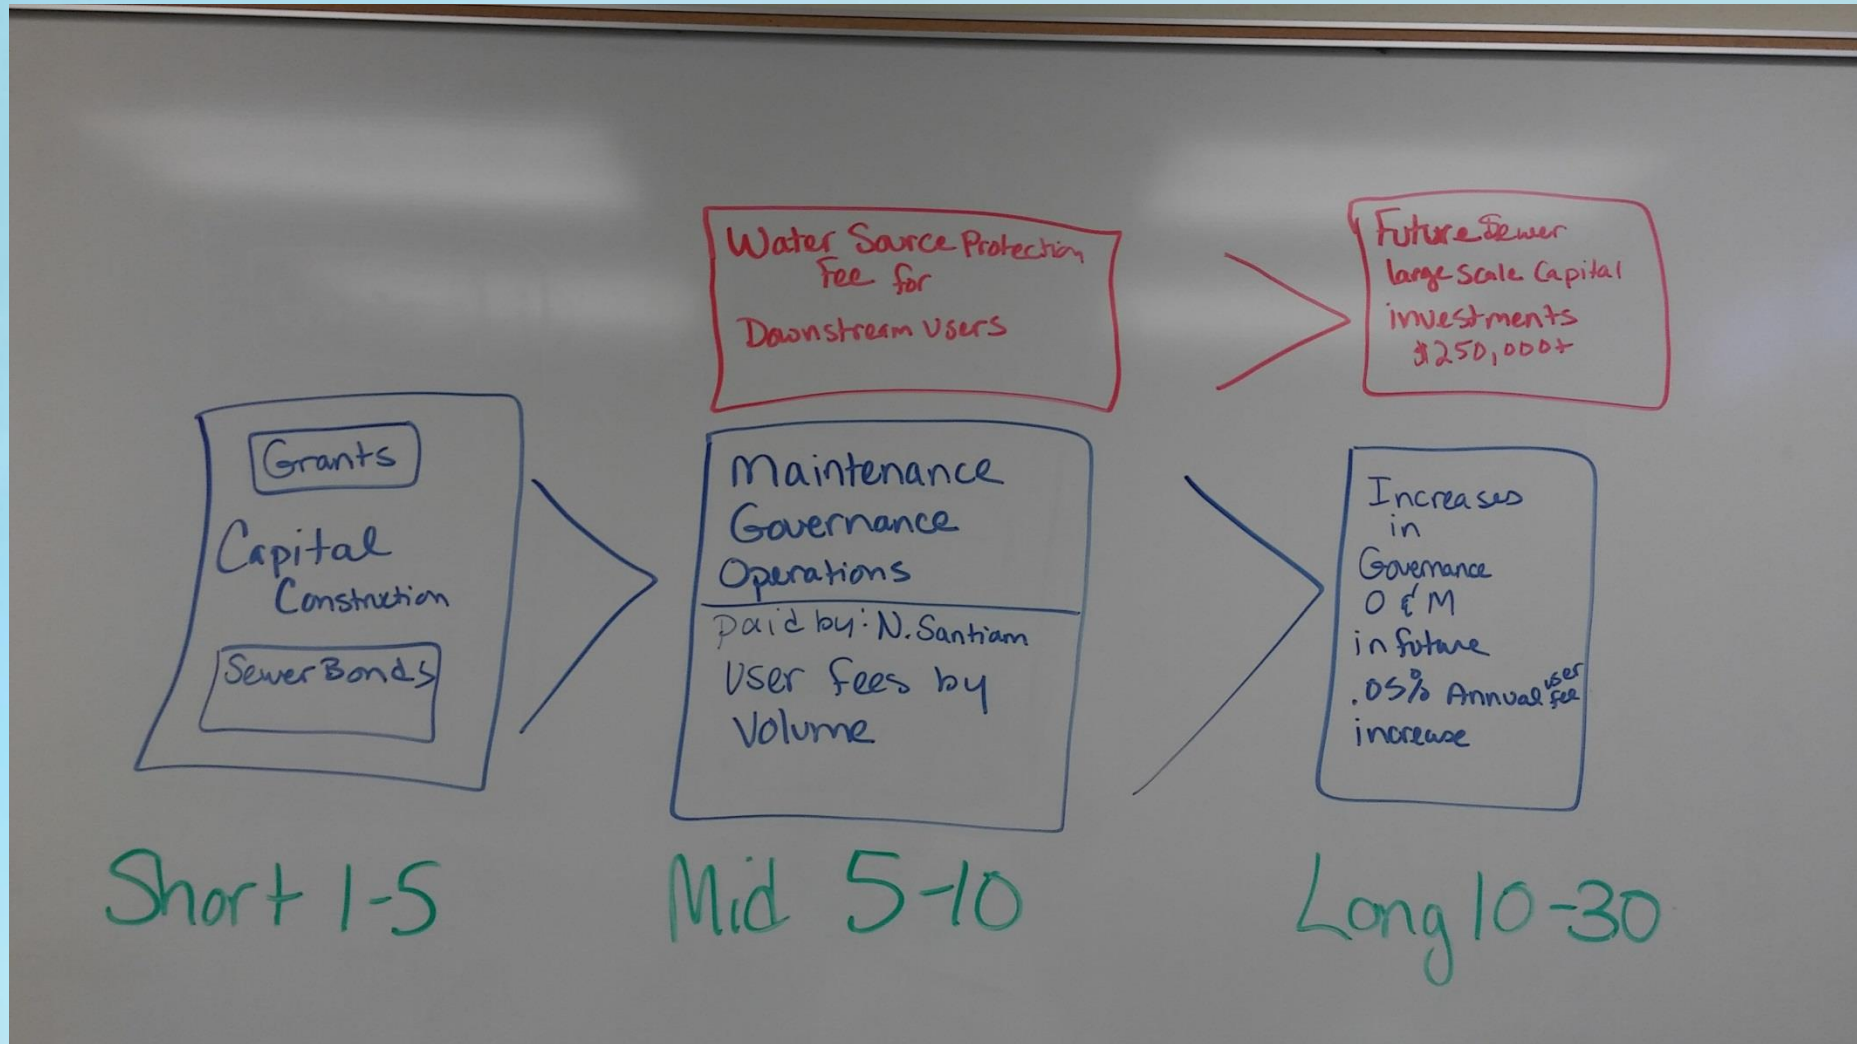 Water Source Protection
Fee for
Downstream Users
Future Sewer
large scale Capital
investments
$250,000+
Grants
Capital
Construction
Sewer Bonds
Maintenance
Governance
Operations
paid by: N. Santiam
User fees by
Volume
Increases
in
Governance
O & M
in future
.05% Annual user fee
increase
Short 1-5
Mid 5-10
Long 10-30